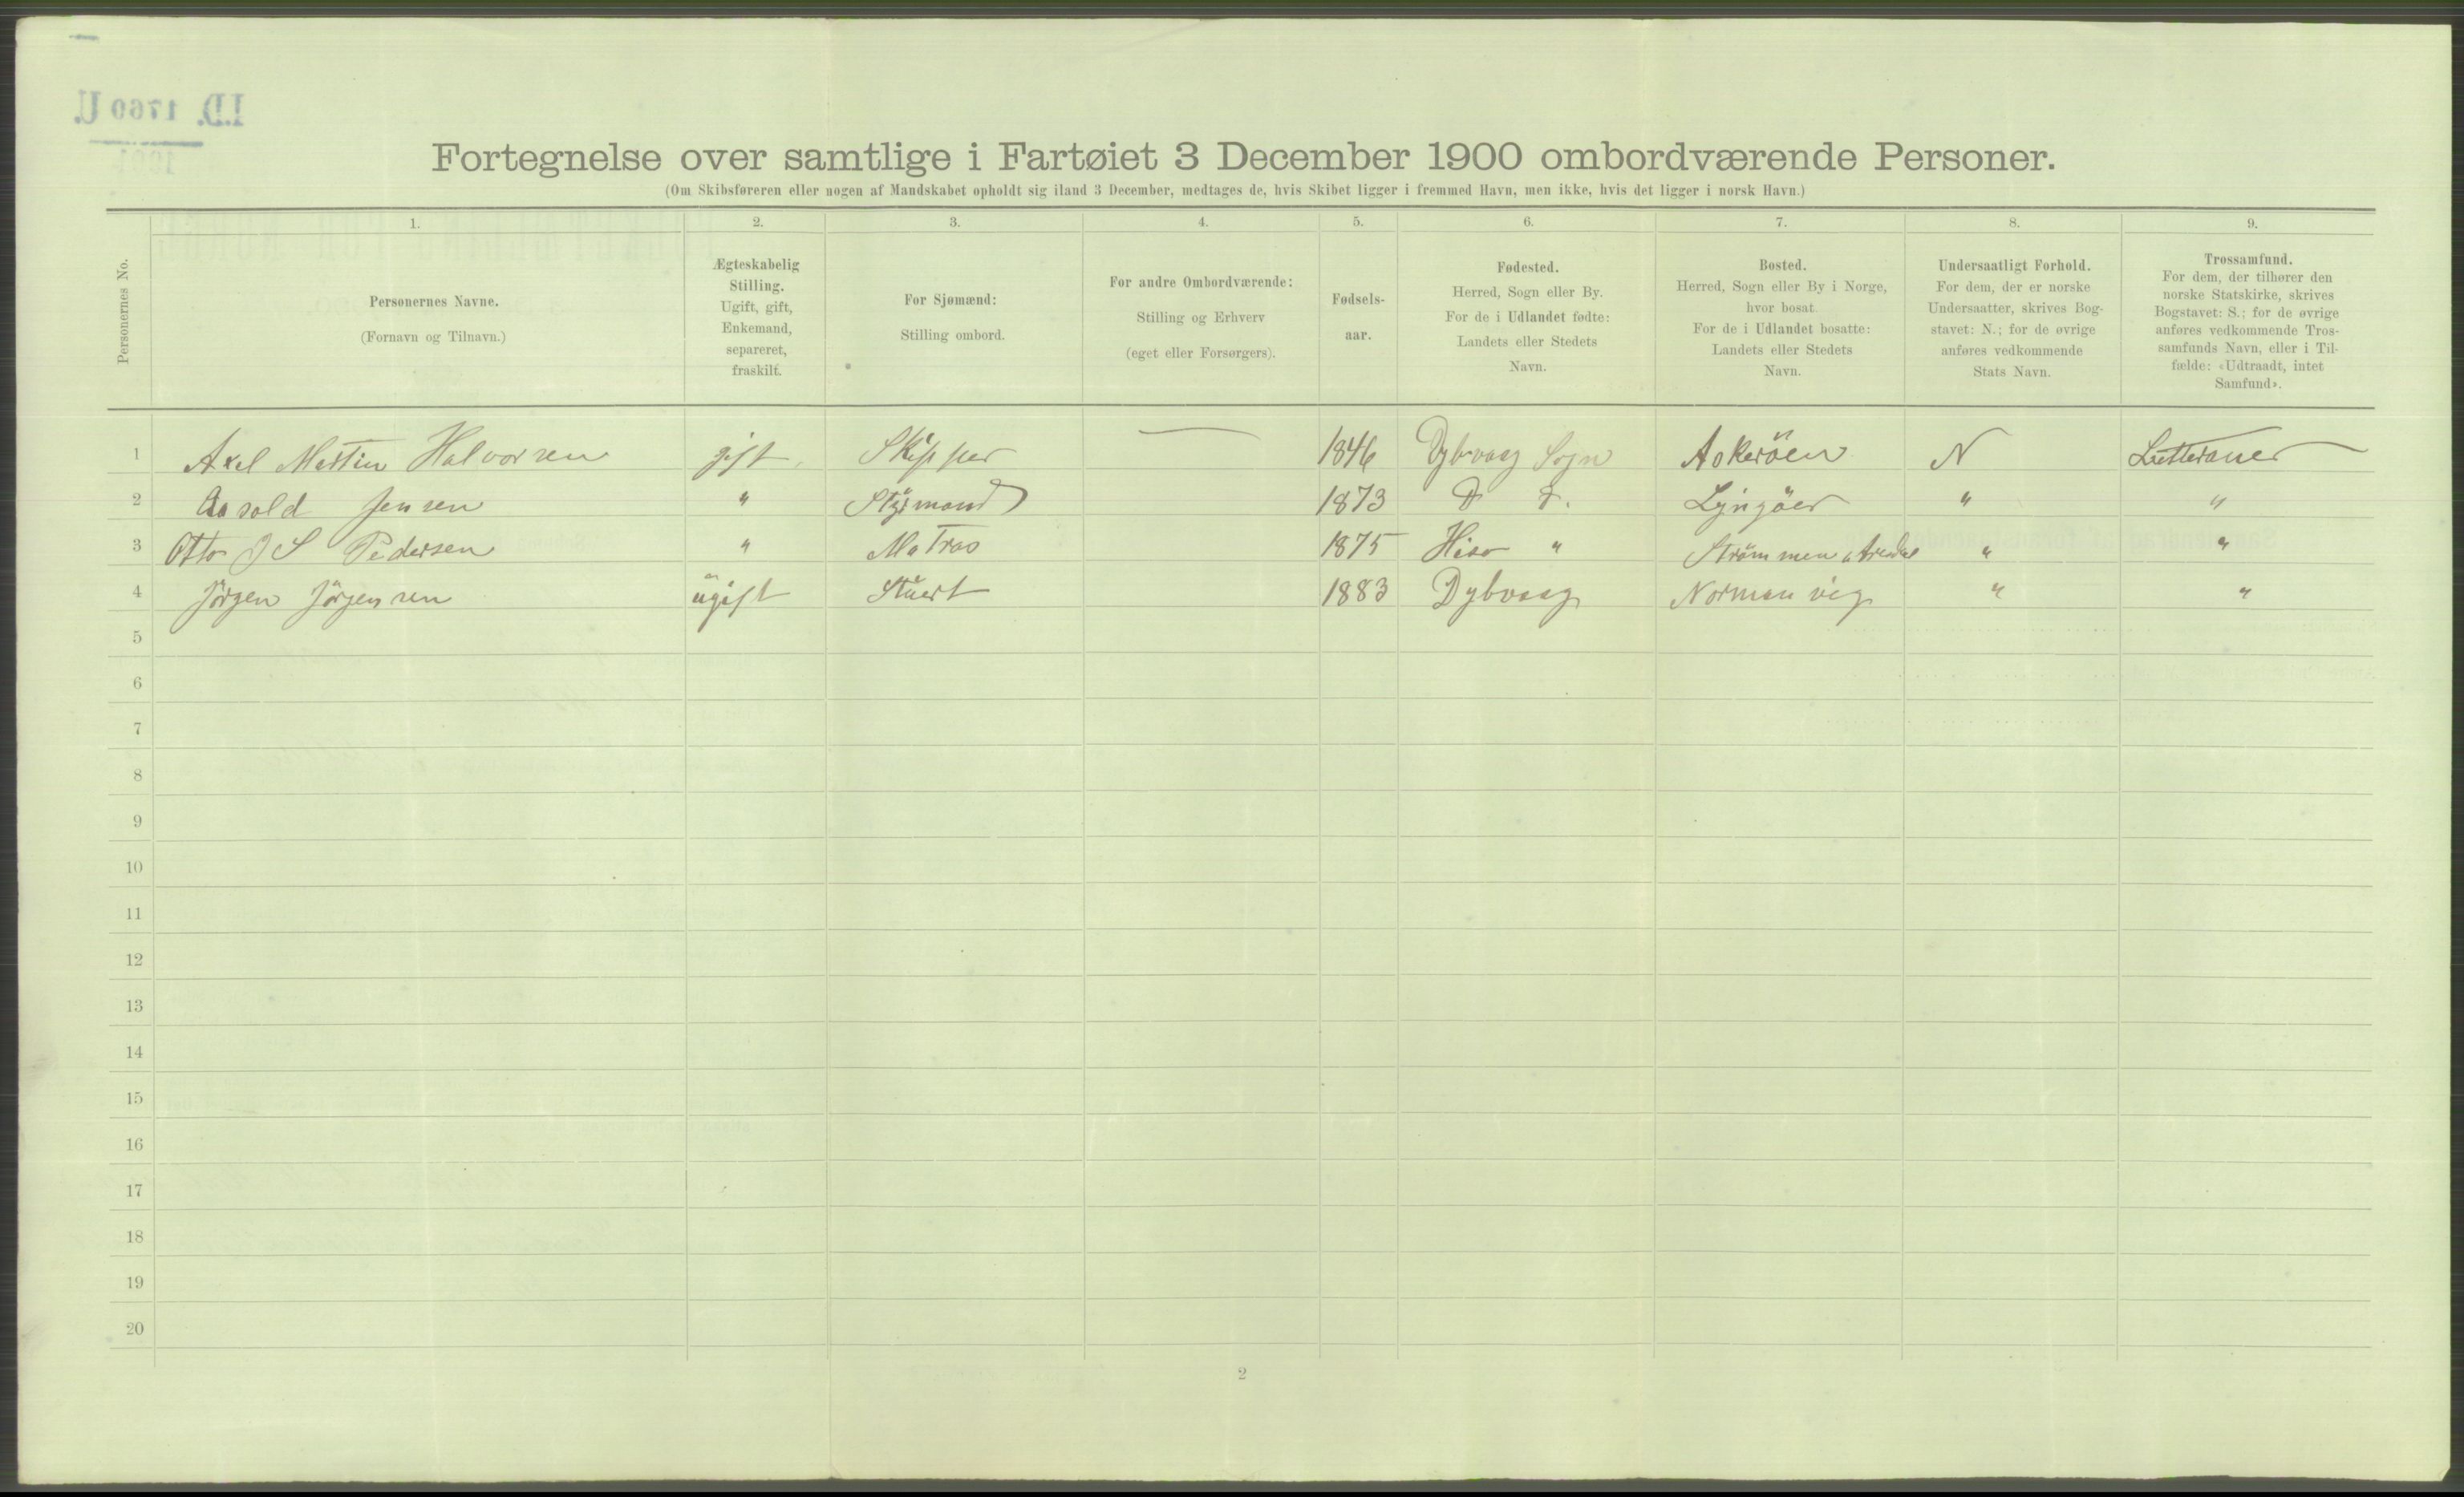 I.D. 1760 U.
Fortegnelse over samtlige i Fartøiet 3 December 1900 ombordværende Personer.
(Om Skibsføreren eller nogen af Mandskabet opholdt sig iland 3 December, medtages de, hvis Skibet ligger i fremmed Havn, men ikke, hvis det ligger i norsk Havn.)
Personernes No.
1. Personernes Navne. (Fornavn og Tilnavn.)
2. Ægteskabelig Stilling. Ugift, gift, Enkemand, separeret, fraskilt.
3. For Sjømænd: Stilling ombord.
4. For andre Ombordværende: Stilling og Erhverv (eget eller Forsørgers).
5. Fødsels-aar.
6. Fødested. Herred, Sogn eller By. For de i Udlandet fødte: Landets eller Stedets Navn.
7. Bosted. Herred, Sogn eller By i Norge, hvor bosat. For de i Udlandet bosatte: Landets eller Stedets Navn.
8. Undersaatligt Forhold. For dem, der er norske Undersaatter, skrives Bogstavet: N.; for de øvrige anføres vedkommende Stats Navn.
9. Trossamfund. For dem, der tilhører den norske Statskirke, skrives Bogstavet: S.; for de øvrige anføres vedkommende Trossamfunds Navn, eller i Tilfælde: «Udtraadt, intet Samfund».
1 Axel Martin Halvorsen gift Skipper — 1846 Dybvaag Sogn Askeröen N Lutteraner
2 Jensen " Stÿrmand 1873 D D. Lyngöer " "
3 Otto J S Pedersen " Matros 1875 Hisø " Strømmen Arendal " "
4 Jörgen Jörgensen ugift Stuert 1883 Dybvaag Normanvig " "
5
6
7
8
9
10
11
12
13
14
15
16
17
18
19
20
2